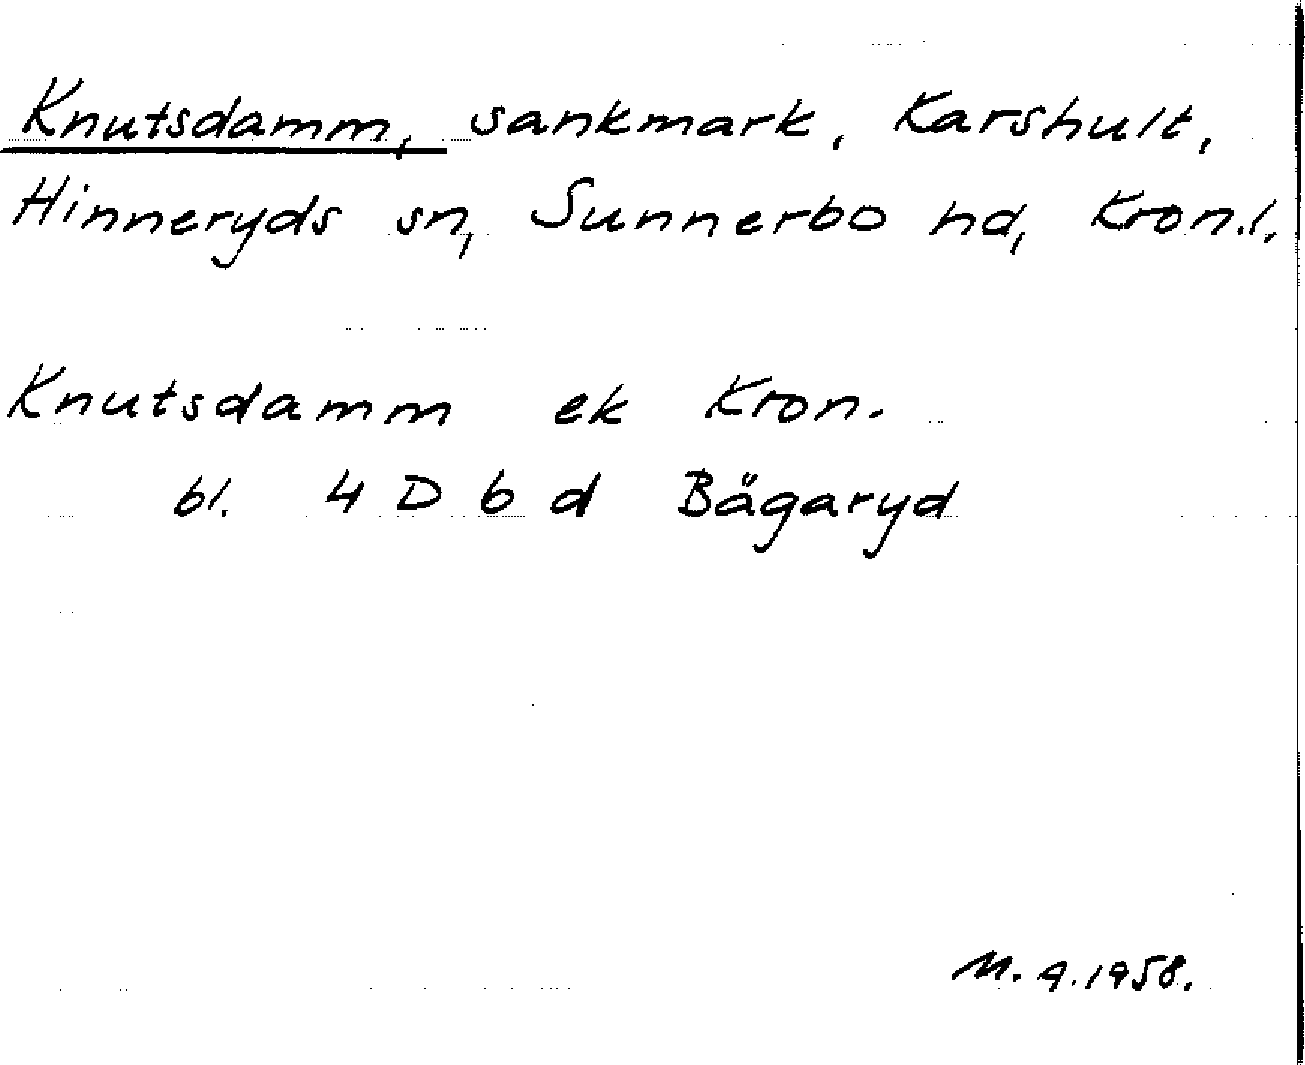 Knutsdamm, sankmark, Karshult,
Hinneryds sn, Sunnerbo hd, Kron.l.
Knutsdamm ek Kron.
bl. 4 D b d Bågaryd
M. A. 1958.